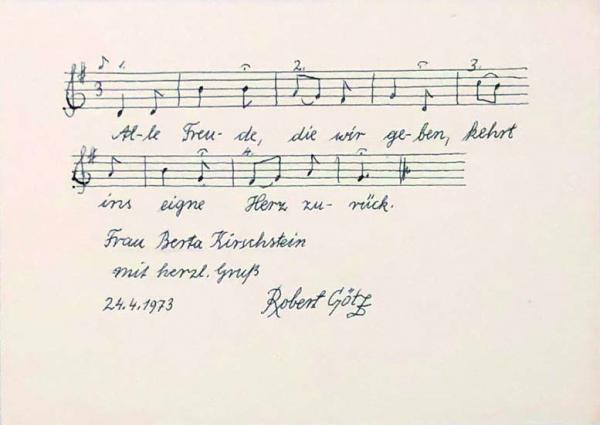 1. 2. 3.
3
Al-le Freu-de, die wir ge-ben, kehrt
4.
ins eigne Herz zu-rück.
Frau Berta Kirschstein
mit herzl. Gruß
24.4.1973 Robert Götz